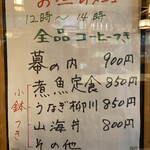 お昼のメニュー
12時～14時
全品コーヒーつき
幕の内 900円
煮魚定食 850円
うなぎ柳川 850円
山海丼 800円
その他
小鉢つき